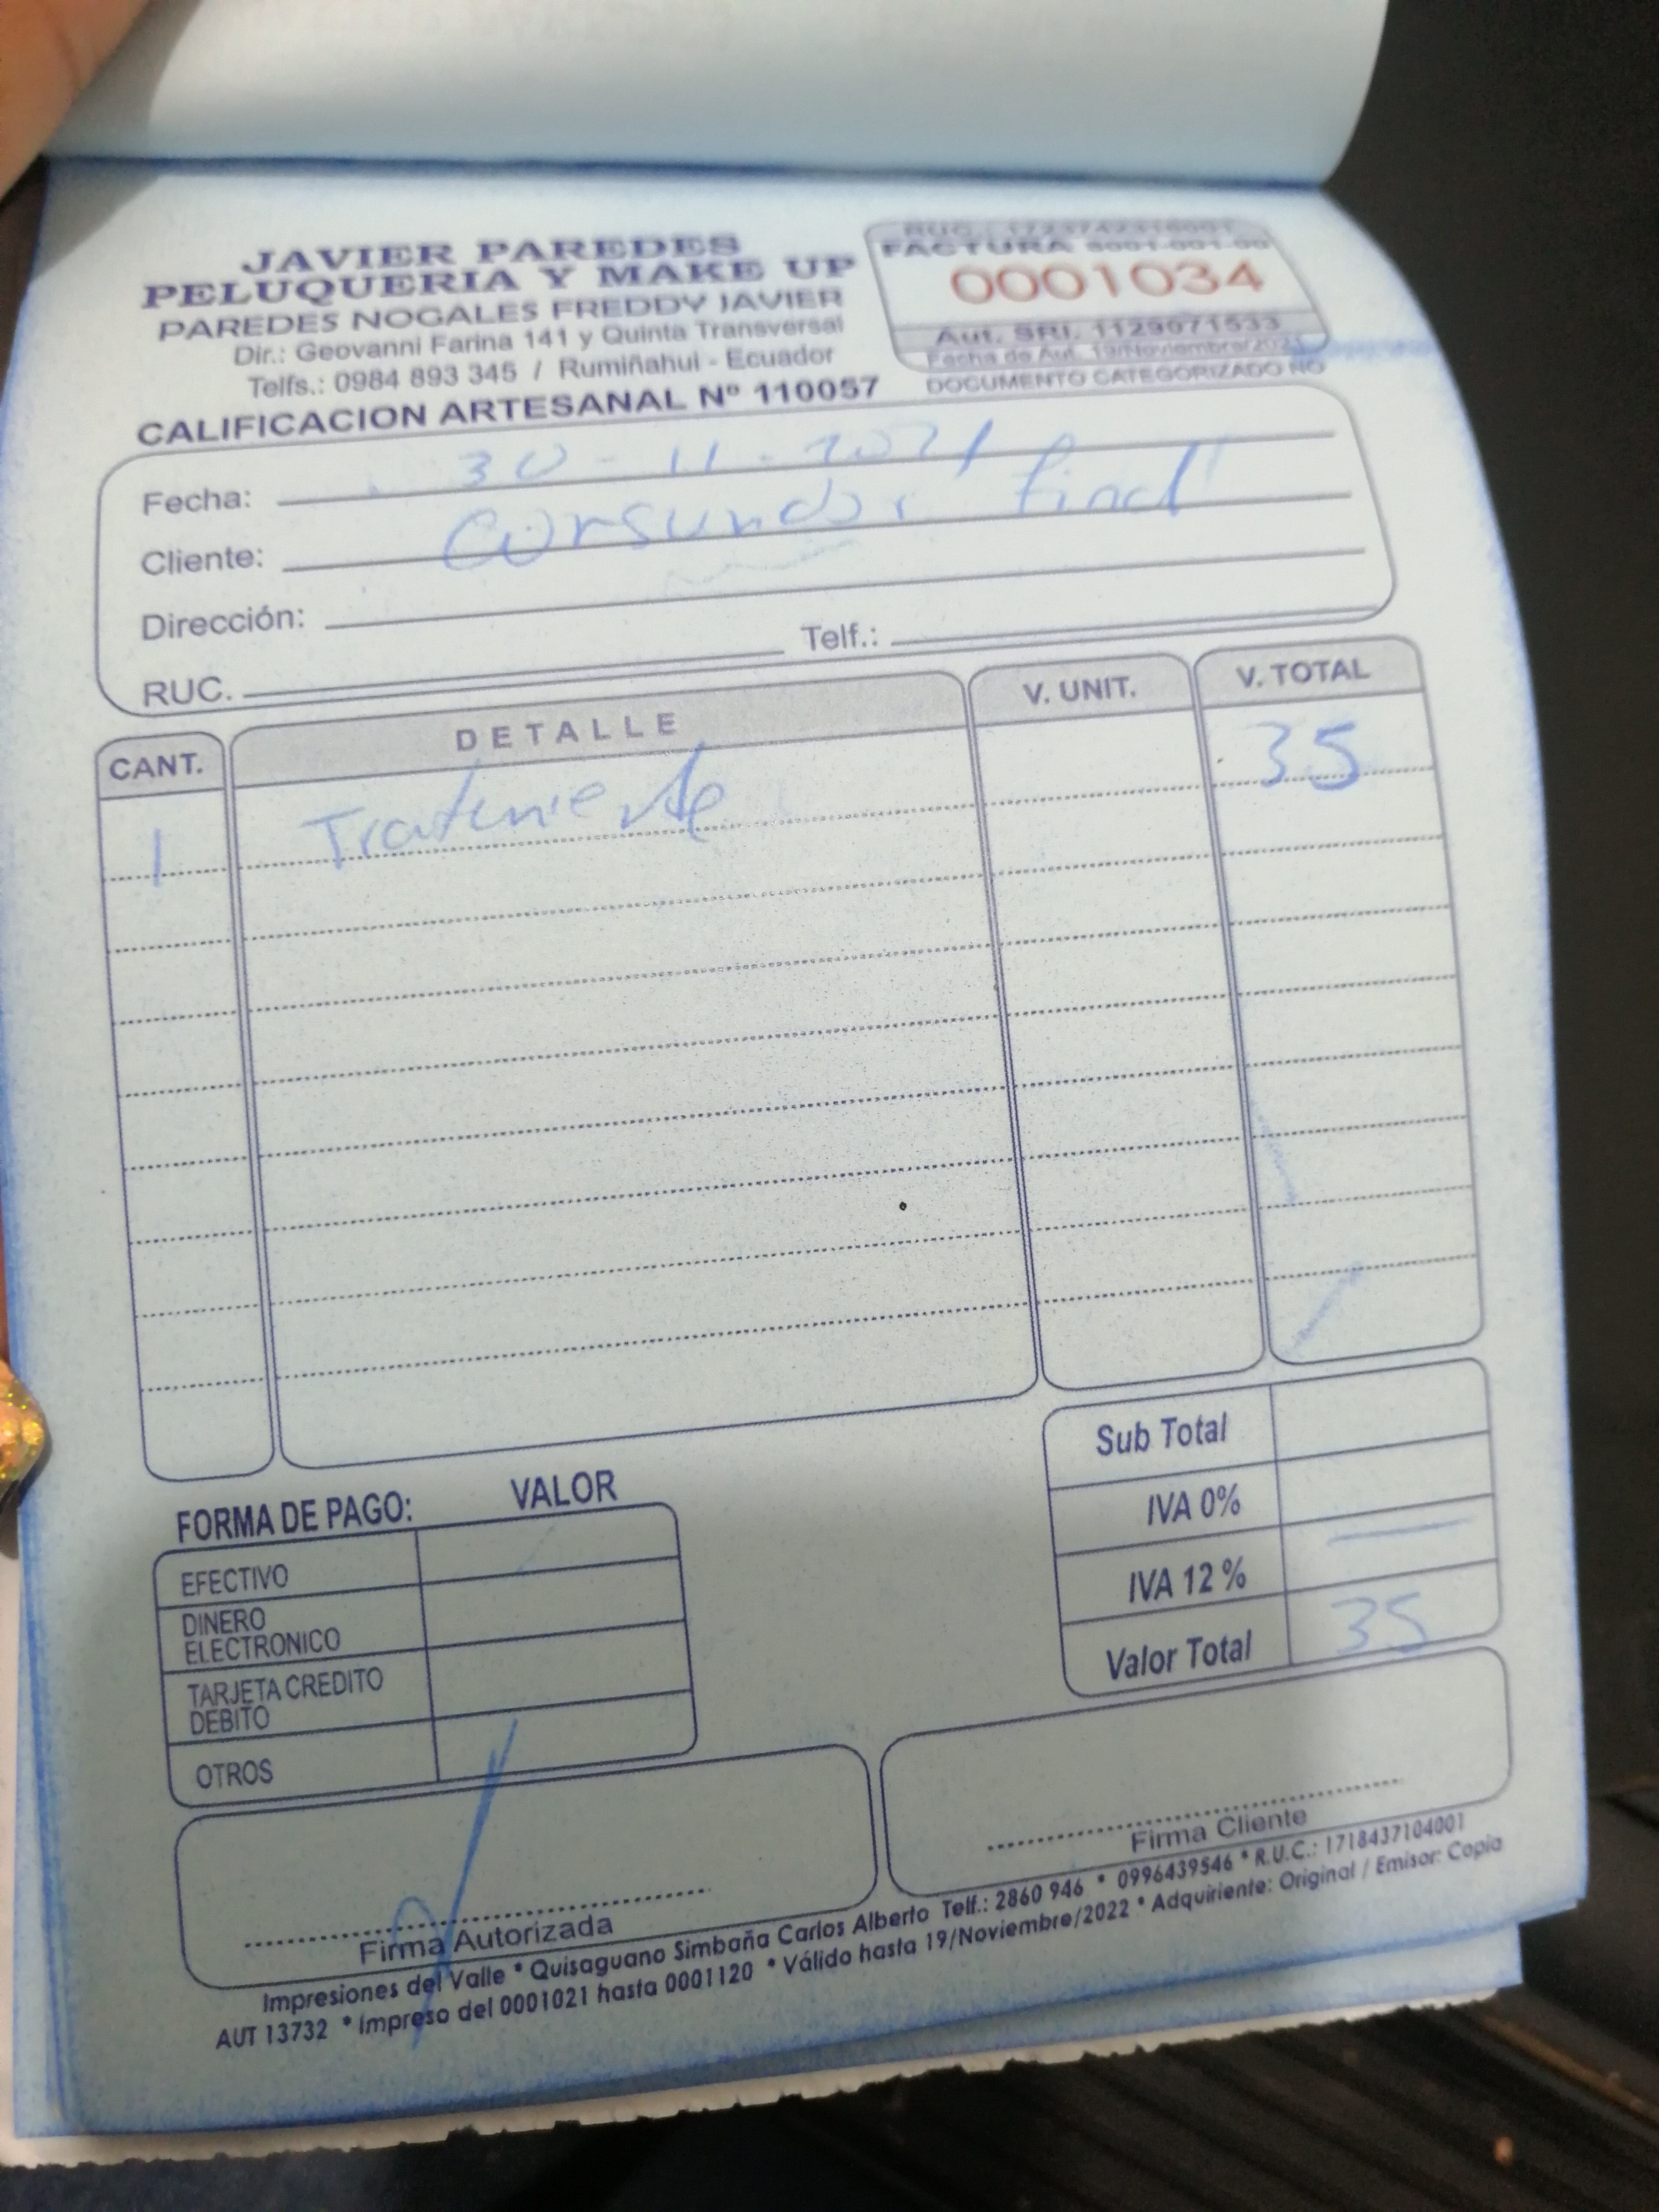 JAVIER PAREDES
PELUQUERIA Y MAKE UP
PAREDES NOGALES FREDDY JAVIER
Dir.: Geovanni Farina 141 y Quinta Transversal
Telfs.: 0984 893 345 / Rumiñahui - Ecuador
CALIFICACION ARTESANAL Nº 110057
RUC.:
FACTURA S001-001-00
0001034
Aut. SRI. 1129071533
Fecha de Aut. 19/Noviembre/2021
DOCUMENTO CATEGORIZADO NO
Fecha: 30-11-2021
Cliente: Consumidor final
Dirección:
RUC. Telf.:
CANT. DETALLE V. UNIT. V. TOTAL
1 Tratamiento 35
Sub Total
IVA 0%
IVA 12 % —
Valor Total 35
FORMA DE PAGO: VALOR
EFECTIVO
DINERO
ELECTRONICO
TARJETA CREDITO
DEBITO
OTROS
Firma Autorizada
Firma Cliente
Impresiones del Valle * Quisaguano Simbaña Carlos Alberto Telf.: 2860 946 * 0996439546 * R.U.C.: 1718437104001
AUT 13732 * Impreso del 0001021 hasta 0001120 * Válido hasta 19/Noviembre/2022 * Adquiriente: Original / Emisor: Copia